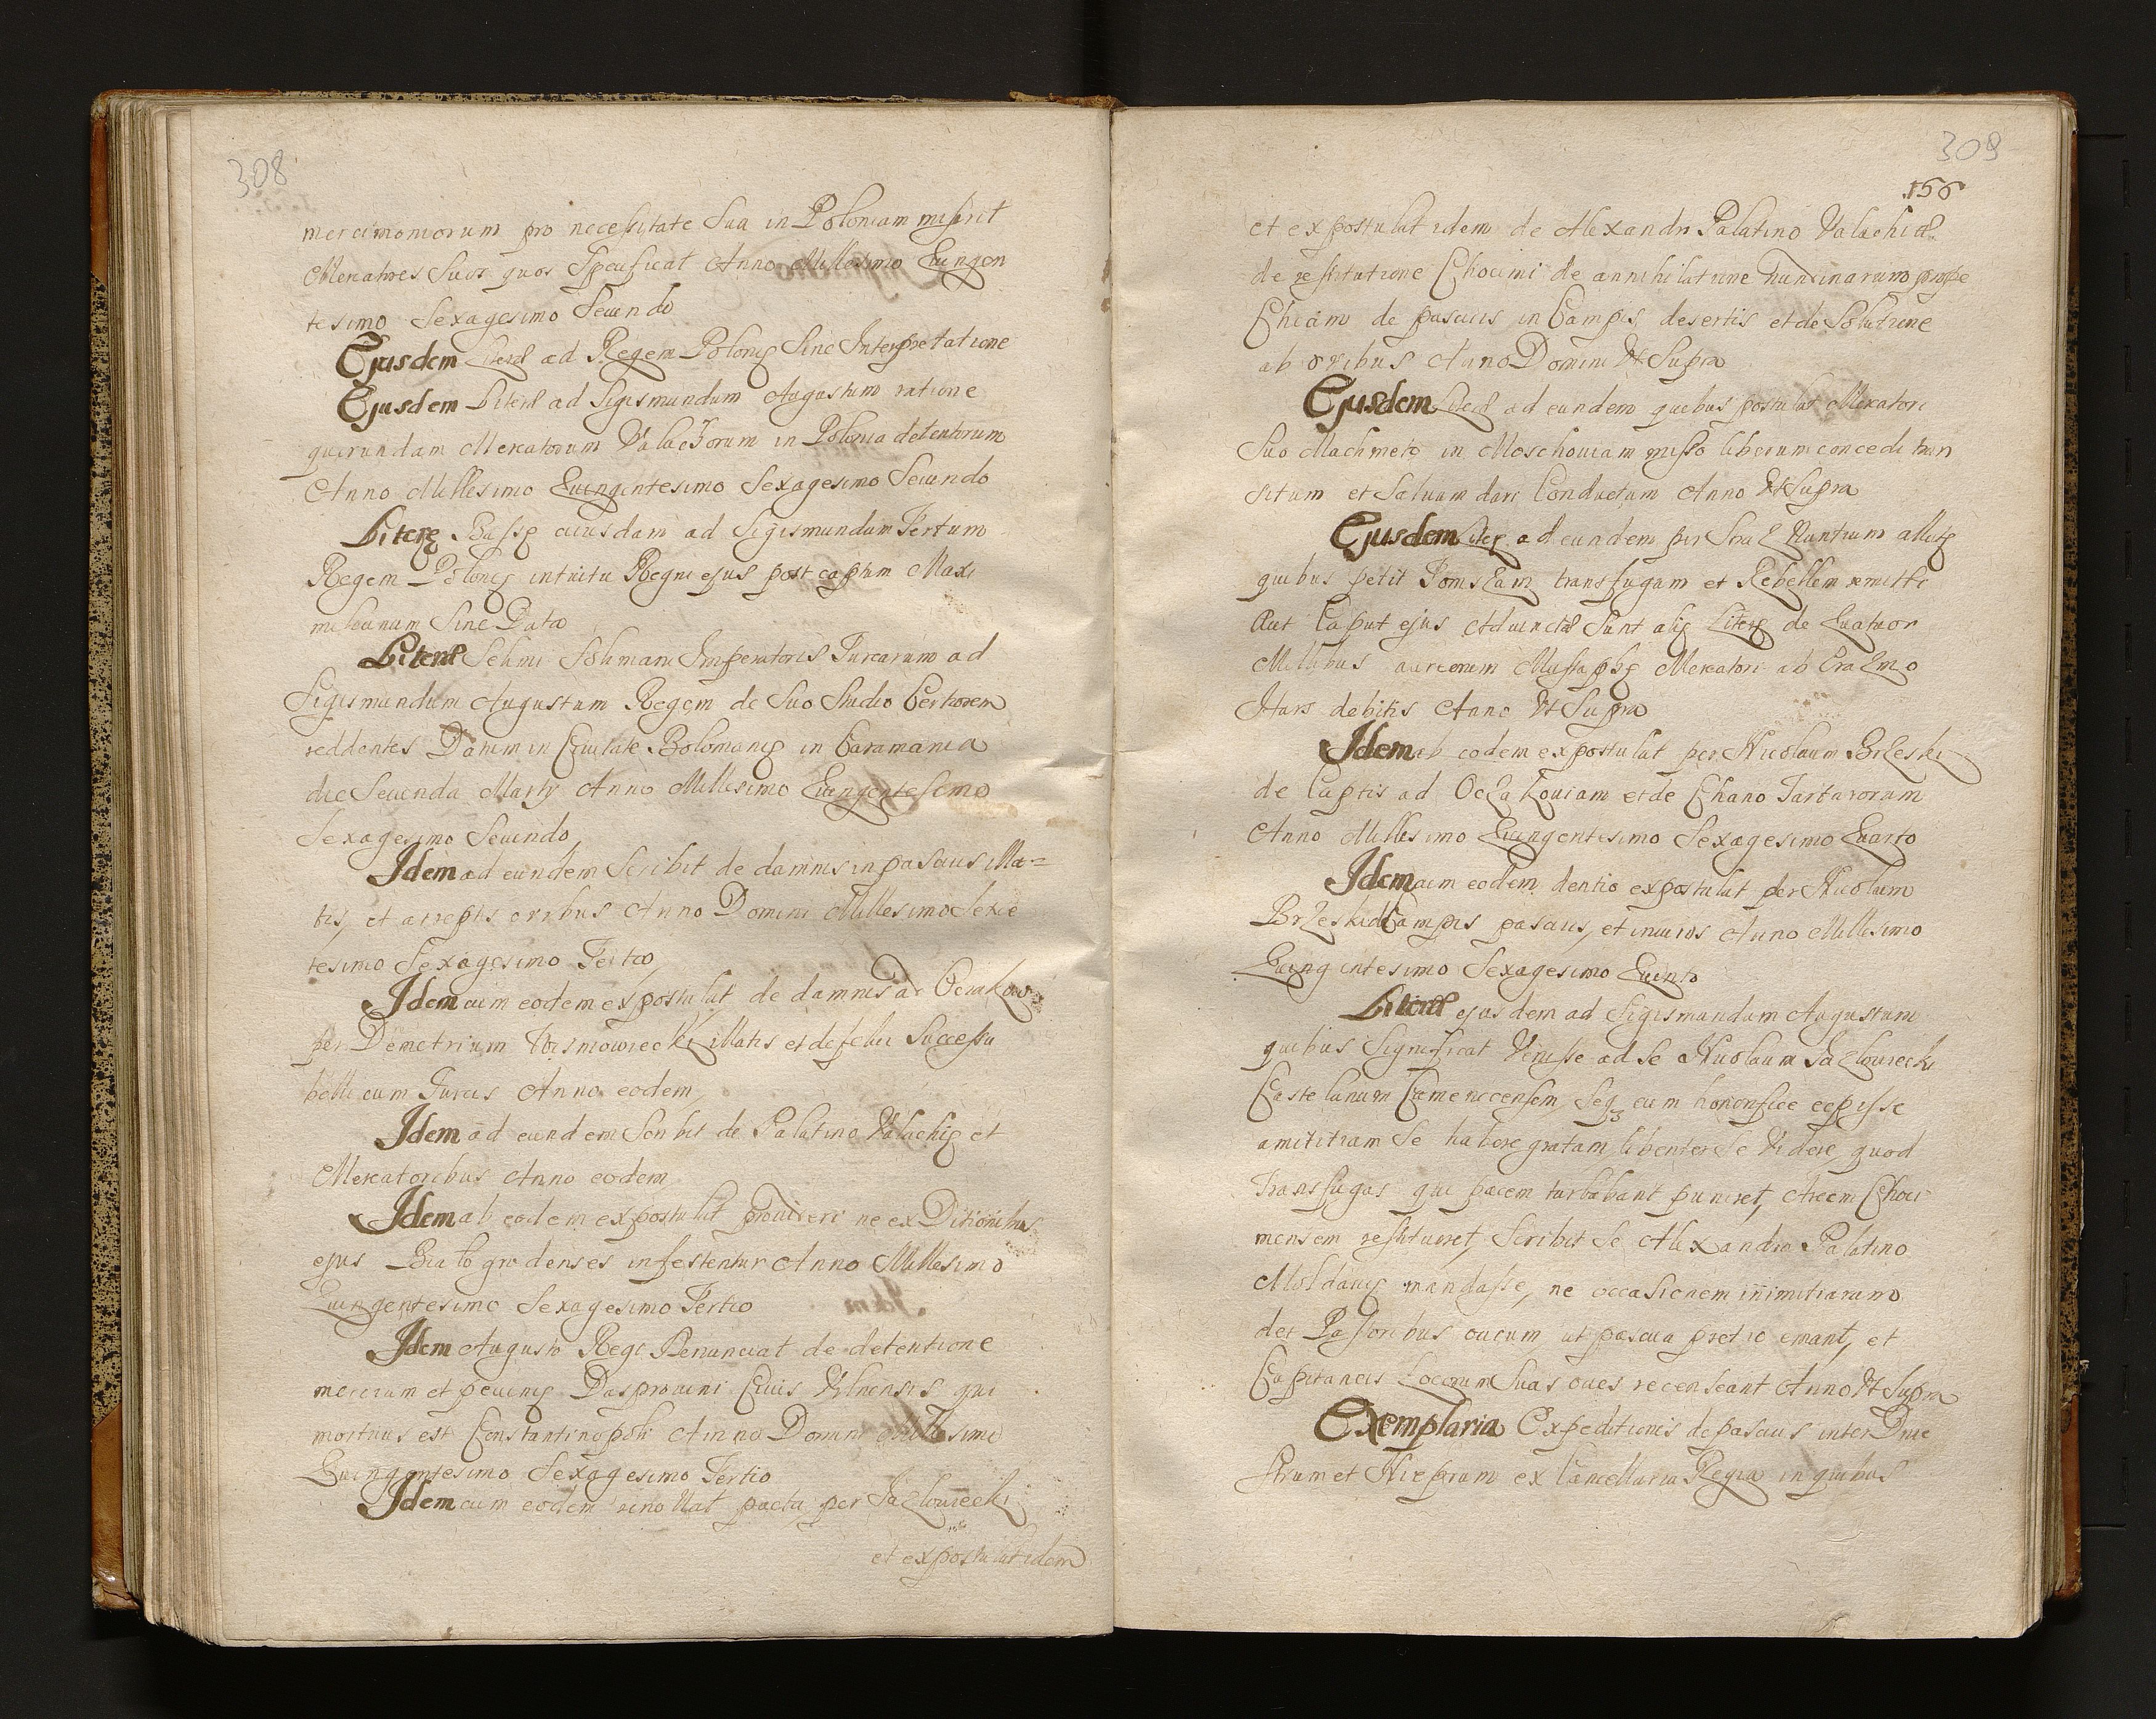 308
mercimoniorum pro necessitate Sua in Poloniam miserit
Mercatores Suos quos Specificat Anno Millesimo Quingen
tesimo Sexagesimo Secundo
Ejusdem Literæ ad Regem Polonię Sine Interpretatione
Ejusdem Literæ ad Sigismundum Augustum ratione
quorundam Mercatorum Valachorum in Polonia detentorum
Anno Millesimo Quingentesimo Sexagesimo Secundo
Literę Bassę cuiusdam ad Sigismundum Tertium
Regem Polonię intuitu Regni ejus post captum Maxi
milianum Sine Dato
Literæ Selimi Solimani Imperatoris Turcarum ad
Sigismundum Augustum Regem de Suo Studio Certiorem
reddentes Datum in Civitate Bolomanię in Caramania
die Secunda Martij Anno Millesimo Quingentesimo
Sexagesimo Secundo
Idem ad eundem Scribit de damnis in pascuis illa=
tis, et arreptis ovibus Anno Domini Millesimo Sexce
tesimo Sexagesimo Tertio
Idem cum eodem expostulat de damnis ad Oczakow
per Demetrium Wismowiecki illatis et de felici Successu
belli cum Turcis Anno eodem
Idem ad eundem Scribit de Palatino Valachię et
Mercatoribus Anno eodem
Idem ab eodem expostulat provideri ne ex Ditionibus
ejus Bialogrodenses infestentur Anno Millesimo
Quingentesimo Sexagesimo Tertio
Idem Augusto Regi Renunciat de detentione
mercium et pecunię Dasprovini Civis Vilnensis qui
mortuus est Constantinopoli Anno Domini Millesimo
Quingentesimo Sexagesimo Tertio
Idem cum eodem renovat pacta per Jazlowiecki
et expostulat idem
309
156
et expostulat idem de Alexandri Palatino Valachiæ
de restitutione Chocimi de annihilatione prope
Chiam de pascuis in Campis desertis et de Solutione
ab ovibus Anno Domini Vt Supra
Ejusdem Literæ ad eundem quibus postulat Mercatori
Suo Machmeto in Moschoviam misso liberum concedi tran
situm et Salvum dari Conductum Anno Vt Supra
Ejusdem Literę ad eundem per Nuntium allatę
quibus petit Tomszam transfugam et Rebellem remitti
Aut Caput ejus Adiunctæ Sunt alię Literę de Quatuor
Millibus aureorum Mustaphę Mercatori ab Erazmo
debitis Anno Vt Supra
Idem ab eodem expostulat per Nicolaum Brzeski
de Captis ad Oczakoviam et de Chano Tartarorum
Anno Millesimo Quingentesimo Sexagesimo Quarto
Idem cum eodem dentio expostulat per Nicolaum
Brzeski de Campis pascuis, et Anno Millesimo
Quingentesimo Sexagesimo Quinto
Literæ ejusdem ad Sigismundum Augustum
quibus Significat Venisse ad Se Nicolaum Jazlowiecki
Castelanum Camenecensem, Seq3 eum honorifice cepisse
amicitiam Se habere gratam, libenter Se Videre, quod
Transfugas qui pacem turbabant puniret, Arcem Choci
mensem restitueret, Scribit Se Alexandro Palatino
Moldavię mandasse, ne occasionem inimicitiarum
det Pastoribus ovium, ut pascua pretio emant, et
Capitaneis Locorum Suas oves recenseant Anno Vt Supra
Exemplaria Expeditionis de pascuis inter Dnie
strum et Nieprum ex Cancellaria Regia in quibus